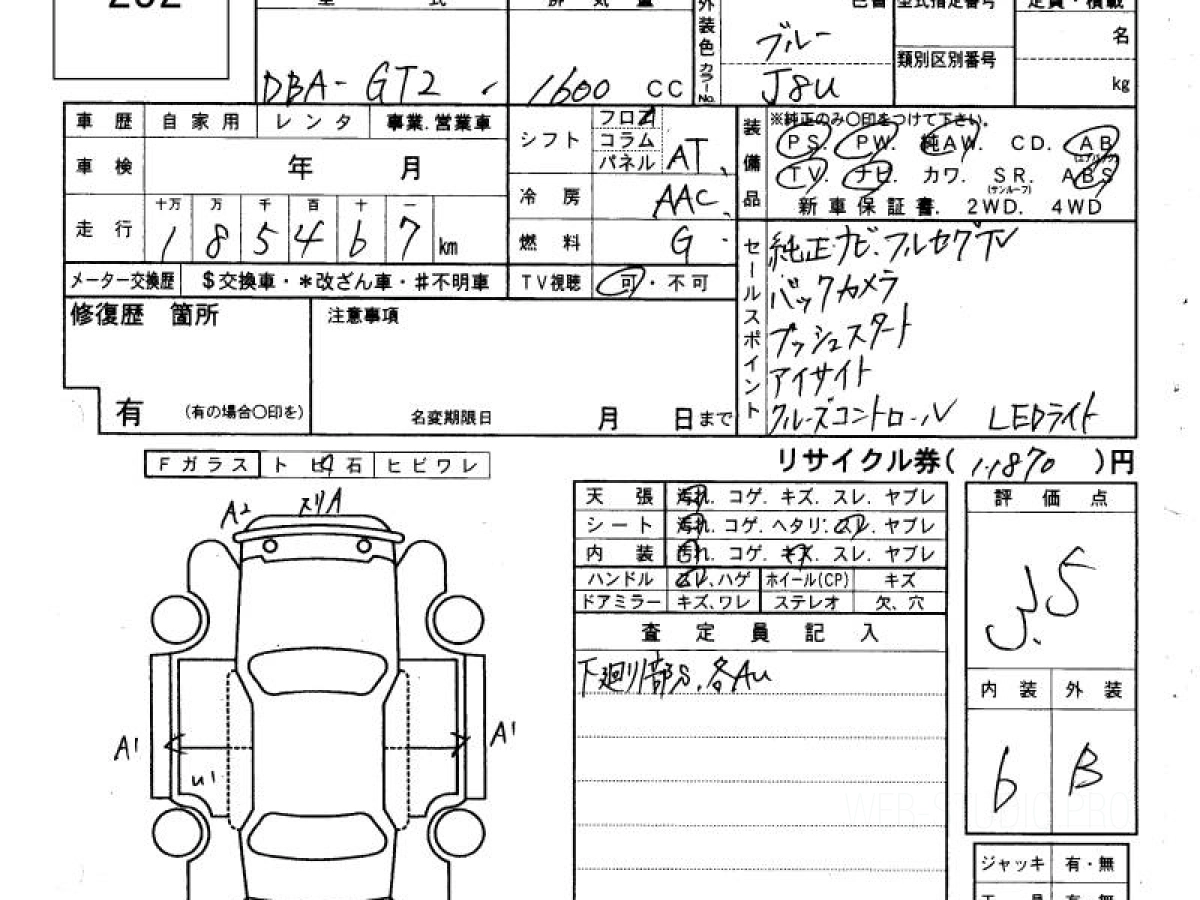 202
型 式 排 気 量 外装色 カラーNo. 色替 型式指定番号 定員・積載
DBA-GT2 1600 CC ブルー J8U 類別区別番号 名 kg
車歴 自家用 レンタ 事業.営業車 シフト フロア コラム パネル AT
装備品 ※純正のみ〇印をつけて下さい。
車検 年 月 PS. PW. 純AW. CD. AB (エアバッグ)
冷房 AAC TV. ナビ. カワ. SR. (サンルーフ) ABS
新車保証書. 2WD. 4WD
走行 十万 万 千 百 十 一
185467 km 燃料 G
メーター交換歴 $交換車・*改ざん車・#不明車 TV視聴 可・不可
セールスポイント
純正ナビ.フルセグTV
バックカメラ
プッシュスタート
アイサイト
クルーズコントロール LEDライト
修復歴 箇所 注意事項
有 (有の場合〇印を) 名変期限日 月 日まで
Fガラス トビ石 ヒビワレ リサイクル券( 11870 )円
天張 汚れ. コゲ. キズ. スレ. ヤブレ
シート 汚れ. コゲ. ヘタリ. スレ. ヤブレ
内装 汚れ. コゲ. キズ. スレ. ヤブレ
ハンドル スレ、ハゲ ホイール(CP) キズ
ドアミラー キズ、ワレ ステレオ 欠、穴
査定員記入
下廻り部S.各AU
評価点
3.5
内装 外装
6 B
A2 スリA
A1 A1
U1
WEB-STUDIO PRO
ジャッキ 有・無
工具 有・無